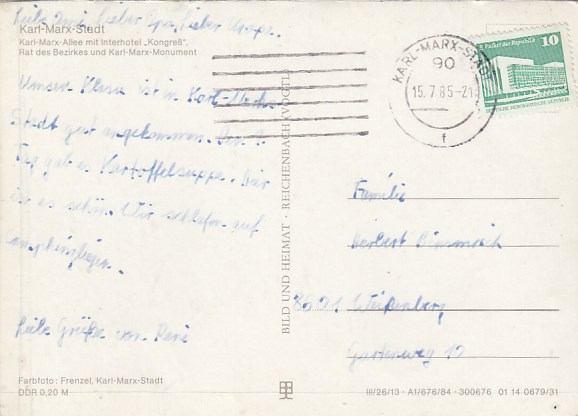 Liebe Omi, lieber Opa, lieber Uropa.
Karl-Marx-Stadt
Karl-Marx-Allee mit Interhotel „Kongreß“,
Rat des Bezirkes und Karl-Marx-Monument
Unsere Klasse ist in Karl-Marx-
Stadt gut angekommen. Am 1.
Tag gab es Kartoffelsuppe. Hier
ist es schön. Wir schlafen auf
Campingliegen.
Liebe Grüße von René
Farbfoto: Frenzel, Karl-Marx-Stadt
DDR 0,20 M
BILD UND HEIMAT · REICHENBACH (VOGTL)
KARL-MARX-STADT
90
15.7.85-21
f
Palast der Republik 10
DEUTSCHE DEMOKRATISCHE REPUBLIK
Familie
Herbert
8501 Weißenberg
Gartenweg 10
III/26/13 · A1/676/84 · 300676 01 14 0679/31